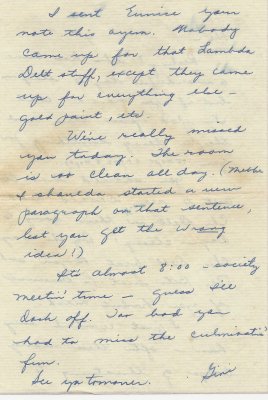 I sent Eunice your
note this ayem. Nobody
came up for that Lambda
Delt stuff, except they came
up for everything else -
gold paint, etc.
We're really missed
you today. The room
is so clean all day. (Mebbe
I shoulda started a new
paragraph on that sentence,
lest you get the wrong
idea!)
It's almost 8:00 - society
meetin' time - guess I'll
dash off. Too bad you
had to miss the culminatin'
fun.
See ya tomorrer.
Gini